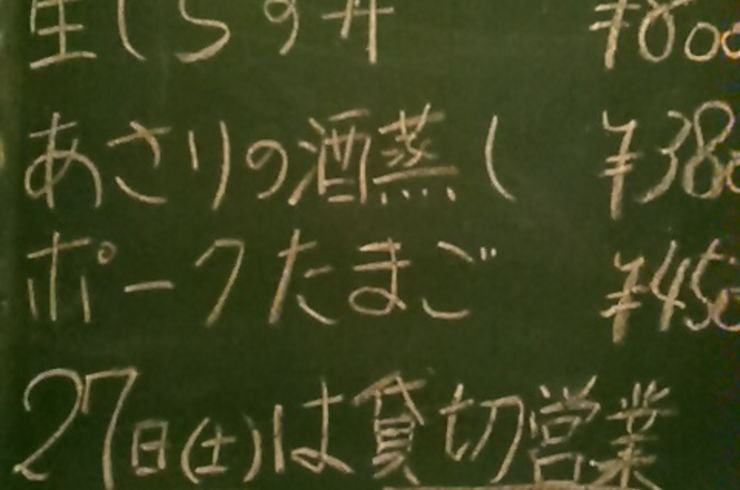 生しらす丼 ¥800
あさりの酒蒸し ¥380
ポークたまご ¥450
27日(土)は貸切営業